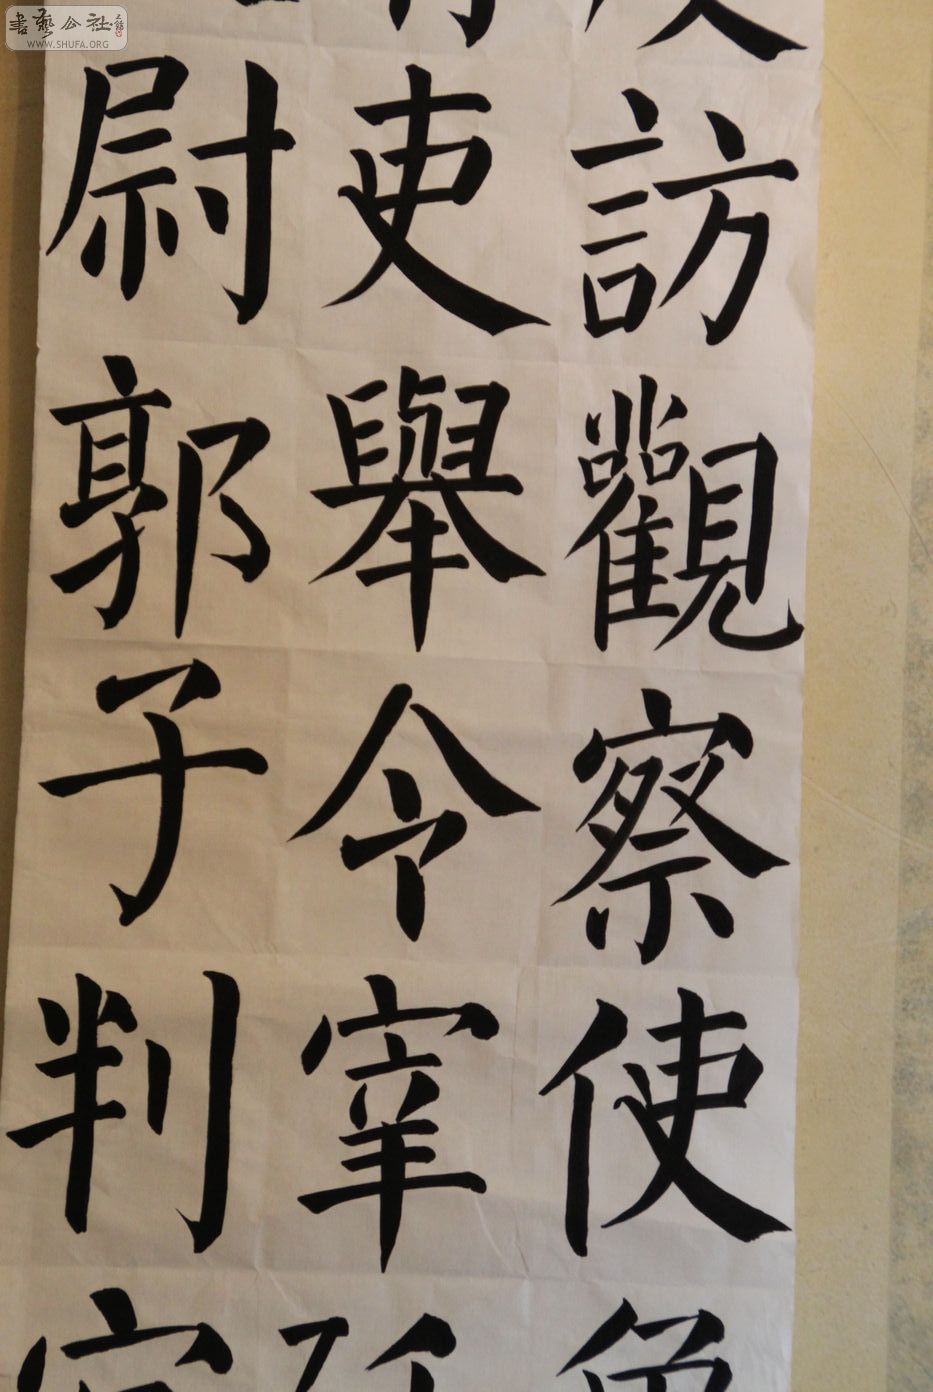 書藝公社
WWW.SHUFA.ORG
訪觀察使
吏舉令宰
尉郭子判